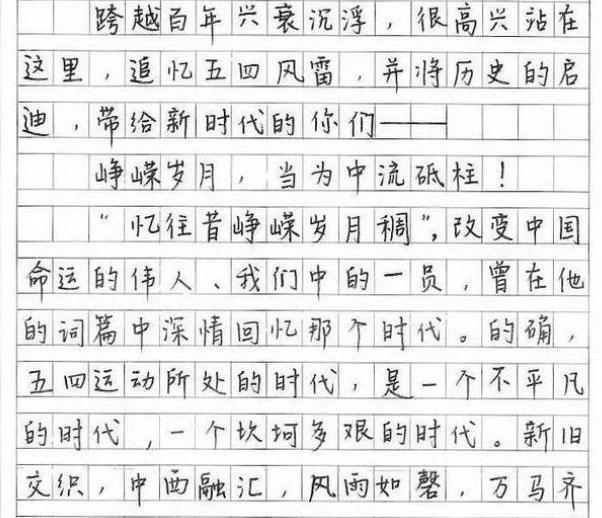 跨越百年兴衰沉浮，很高兴站在
这里，追忆五四风雷，并将历史的启
迪，带给新时代的你们——
峥嵘岁月，当为中流砥柱！
“忆往昔峥嵘岁月稠”，改变中国
命运的伟人、我们中的一员，曾在他
的词篇中深情回忆那个时代。的确，
五四运动所处的时代，是一个不平凡
的时代，一个坎坷多艰的时代。新旧
交织，中西融汇，风雨如磬，万马齐